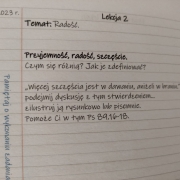 2023 r.
Lekcja 2
Temat: Radość.
Przyjemność, radość, szczęście.
Czym się różnią? Jak je zdefiniować?
„Więcej szczęścia jest w dawaniu, aniżeli w braniu”
podejmij dyskusję z tym stwierdzeniem...
zilustruj ją rysunkowo lub pisemnie.
Pomoże Ci w tym Ps 84,16-18.
Pamiętaj o wykonaniu zadania